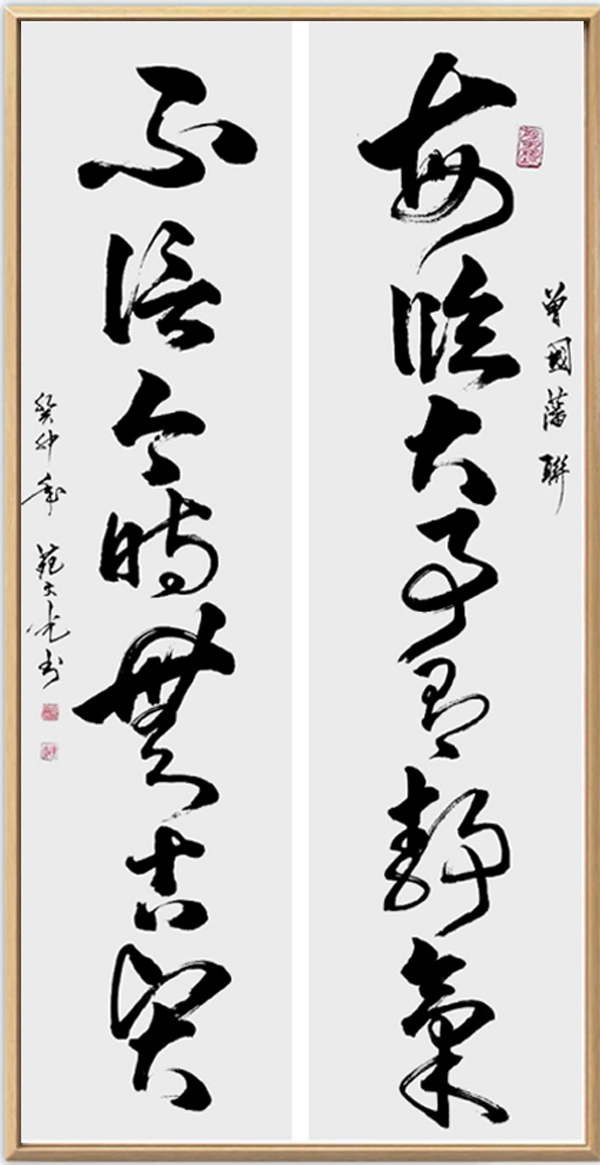 曾國藩聯
每臨大事有靜氣
不信今時無古賢
癸卯年 范光书